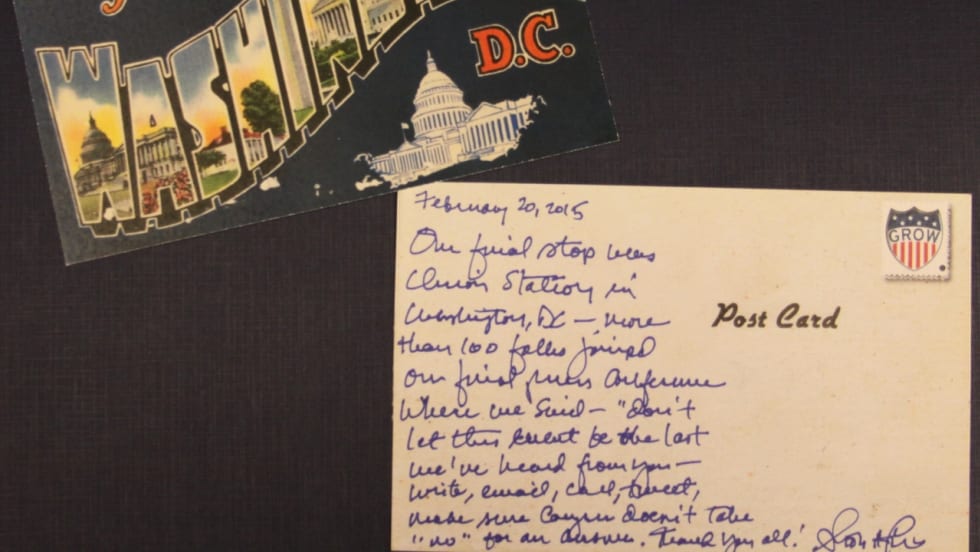 WASHIN
D.C.
GROW
Post Card
February 20, 2015
Our final stop was
Union Station in
Washington, DC — more
than 100 folks joined
our final press conference
where we said — "don't
let this event be the last
we've heard from you —
write, email, call, tweet,
make sure Congress doesn't take
"no" for an answer. Thank you all!